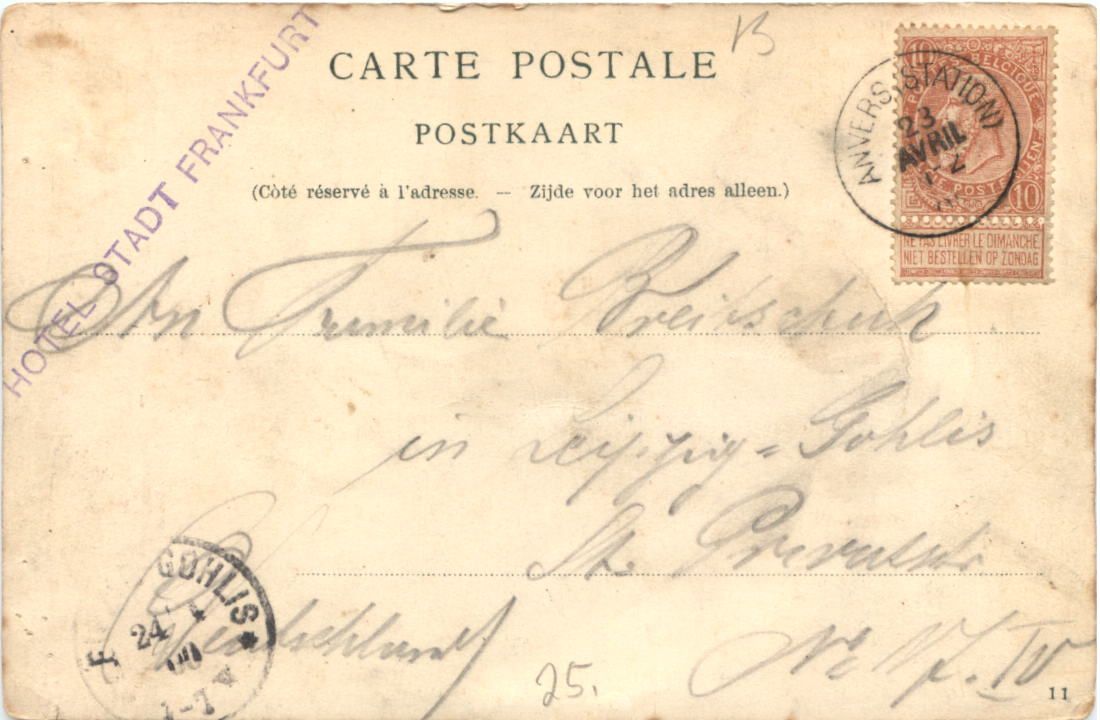 B
CARTE POSTALE
POSTKAART
(Côté réservé à l'adresse. — Zijde voor het adres alleen.)
HOTEL STADT FRANKFURT
ANVERS (STATION)
23
AVRIL
10 10
POSTES
NE PAS LIVRER LE DIMANCHE
NIET BESTELLEN OP ZONDAG
An Familie Breitschuh
in Leipzig=Gohlis
St.
Deutschland
No IV
GOHLIS
24 4
00
25.
11